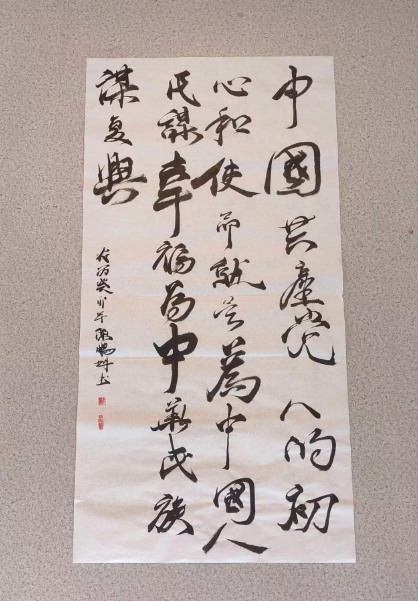 中國共產党人的初
心和使命就是為中國人
民謀幸福为中華民族
謀复興
癸卯年 书